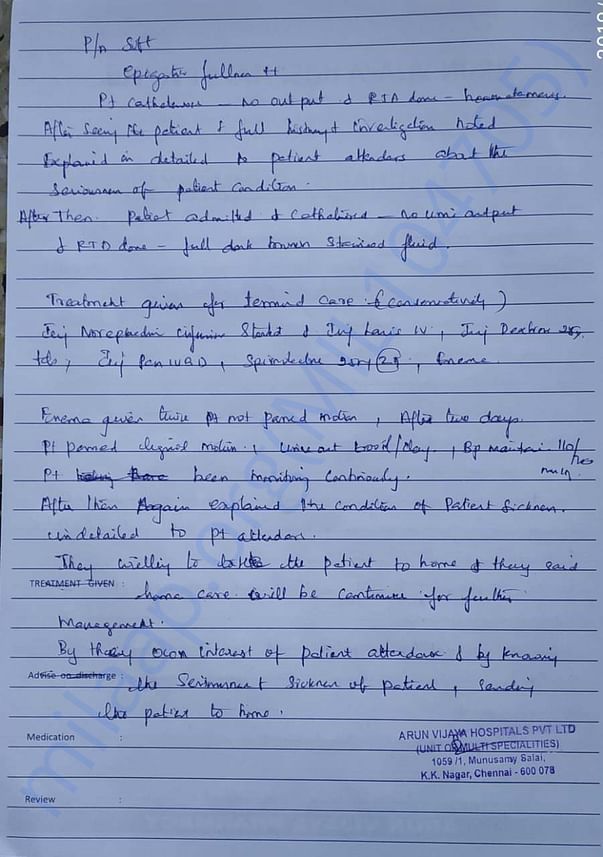 P/A Soft
Epigastric fullness ++
Pt Catheterised - no output & RTA done - heamatemesis.
After seeing the patient & full history & investigation noted
Explained in detailed to patient attenders about the
Seriousness of patient Condition.
After Then. Patient admitted & Catheterised - no urine output
& RTA done - full dark brown Stained fluid.
Treatment given for terminal care (Conservatively)
Inj Noradrenaline infusion Started & Inj Lasix IV, Inj Dextrose 25%
tds, Inj Pan 40 , Enema.
Enema given twice pt not passed motion, After two days
Pt passed motion, Urine out /day, Bp maintain 110/
Pt been monitoring Continously.
After then Again explained the condition of Patient Sickness.
indetailed to pt attendar.
They willing to take the patient to home & they said
TREATMENT GIVEN :
home care will be continue for further
management.
By they own interest of patient attendars & by knowing
Advise on discharge :
the Seriousness & Sickness of patient, Sending
the patient to home.
Medication :
ARUN VIJAYA HOSPITALS PVT LTD
(UNIT OF MULTI SPECIALITIES)
1059 /1, Munusamy Salai,
K.K. Nagar, Chennai - 600 078
Review :
milaap.org(MIL104705)